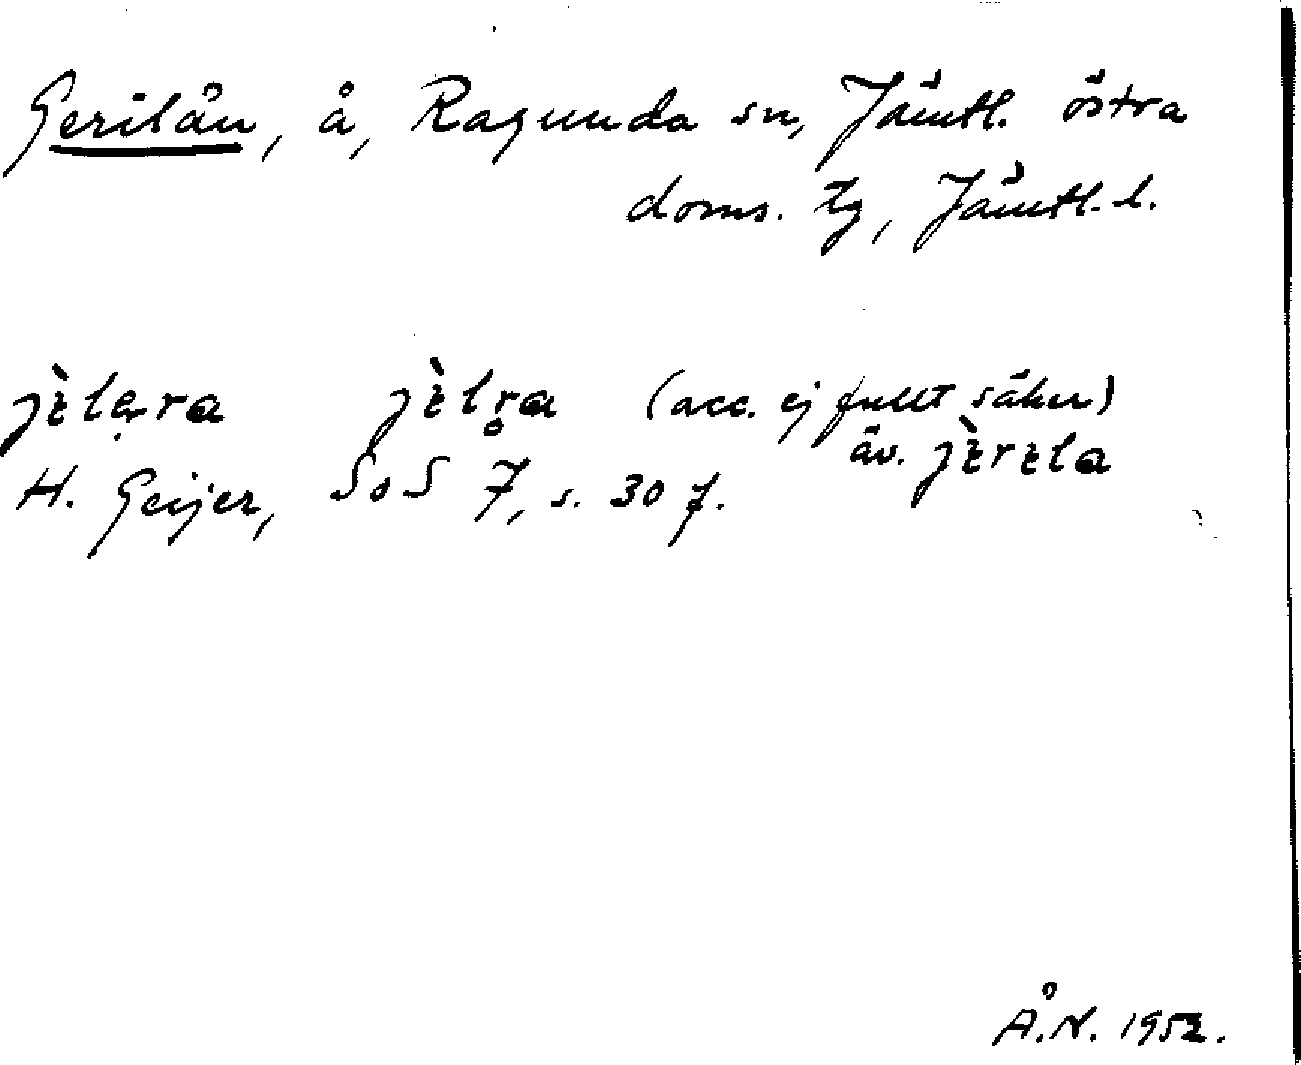 Gerilån, å, Ragunda sn, Jämtl. östra
doms. tg, Jämtl. l.
jɛ̀lərɑ jɛ̀lr̥ɑ (acc. ej fullt säker)
äv. jɛ̀rɛlɑ
H. Geijer, SoS 7, s. 30 f.
Å.N. 1952.